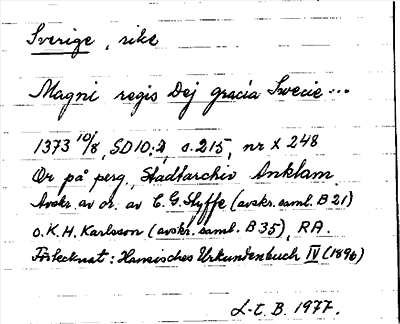 Sverige, rike
Magni regis Dej gracia Swecie...
1373 10/8, SD 10:2, s. 215, nr X 248
Or på perg, Stadtarchiv Anklam
Avskr. av or. av E. G. Styffe (avskr. saml. B 21)
o. K. H. Karlsson (avskr. saml. B 35), RA.
Förtecknat: Hansisches Urkundenbuch IV (1896)
L-t. B. 1977.